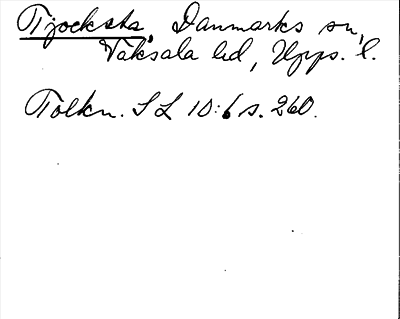 Tjocksta, Danmarks sn,
Vaksala hd, Upps. l.
Tolkn. SL 10:6 s. 260.